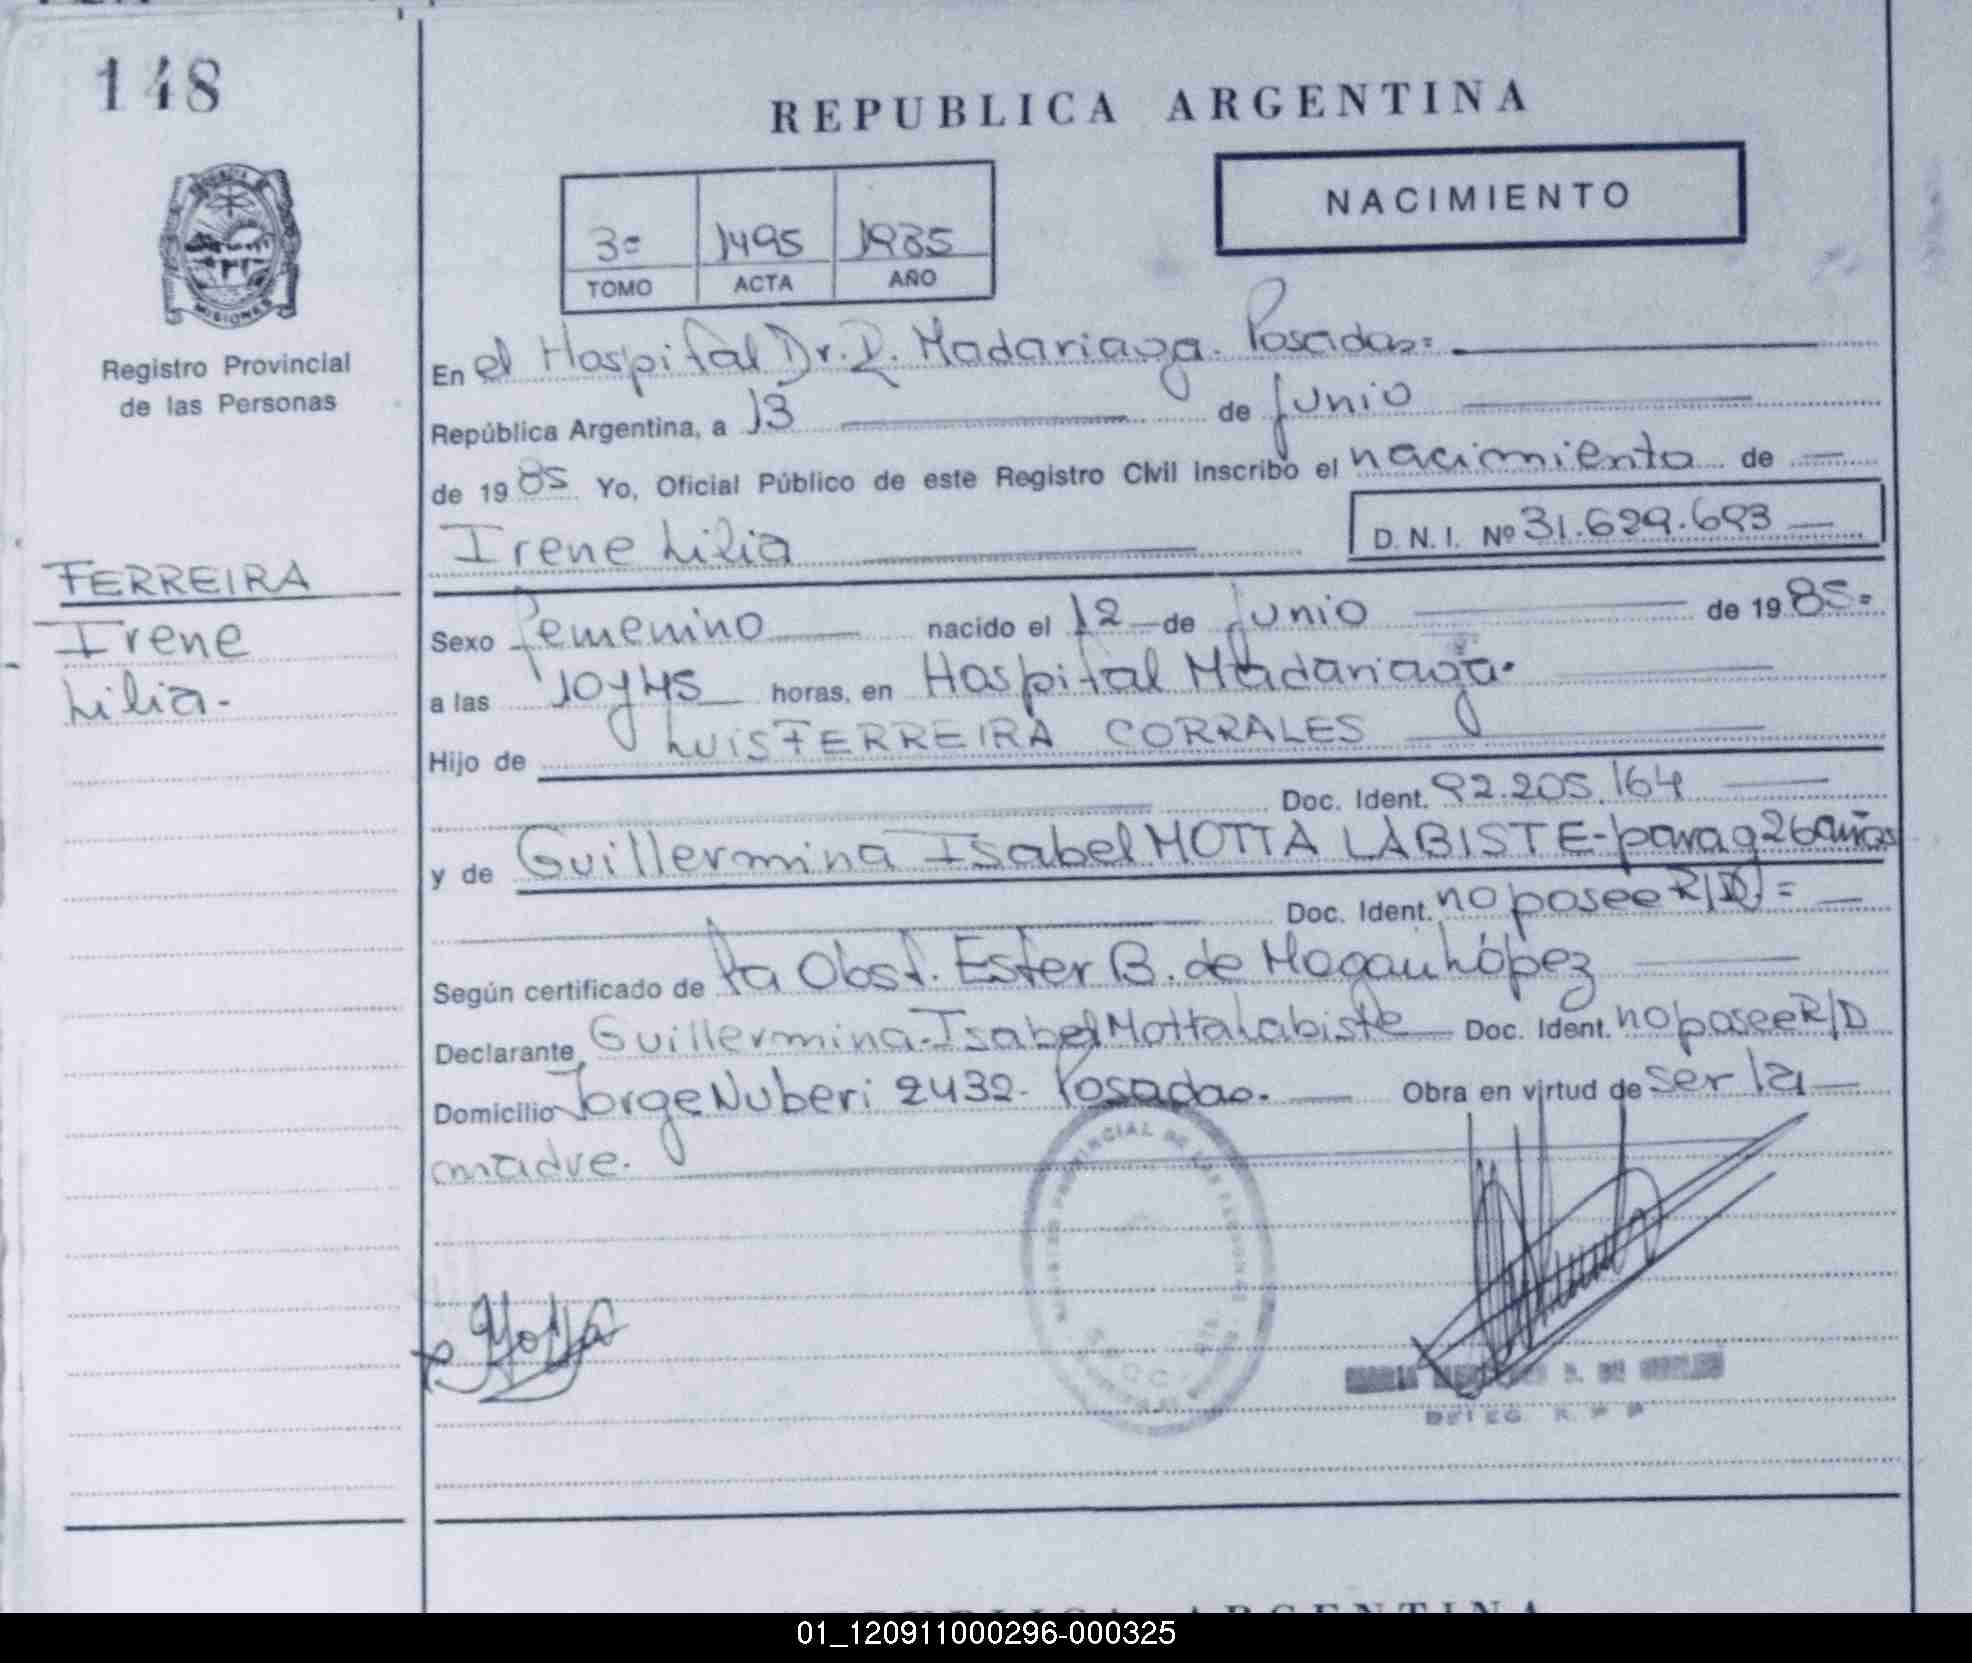 148
REPUBLICA ARGENTINA
NACIMIENTO
3º 1495 1985
TOMO ACTA AÑO
PROVINCIA DE
MISIONES
Registro Provincial
de las Personas
En el Hospital Dr. R. Madariaga. Posadas=
República Argentina, a 13 de junio
de 1985 Yo, Oficial Público de este Registro Civil inscribo el nacimiento de
Irene Lilia D. N. I. Nº 31.629.693
FERREIRA
Irene
Lilia.-
Sexo femenino nacido el 12 de junio de 1985=
a las 10y45 horas, en Hospital Madariaga.
Hijo de Luis FERREIRA CORRALES
Doc. Ident. 92.205.164
y de Guillermina Isabel MOTTA LABISTE-parag 26 años
Doc. Ident. no posee R/D =
Según certificado de la Obst. Ester B. de López
Declarante Guillermina Isabel Motta Labiste Doc. Ident. no posee R/D
Domicilio Jorge Nuberi 2432- Posadas. Obra en virtud de ser la
madre.
REGISTRO PROVINCIAL DE LAS PERSONAS
Motta
DELEG. R P P
REPUBLICA ARGENTINA
01_120911000296-000325